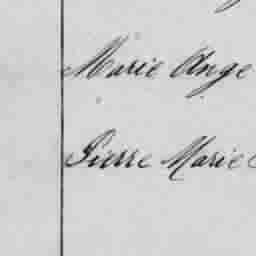 Marie Ange
Pierre Marie